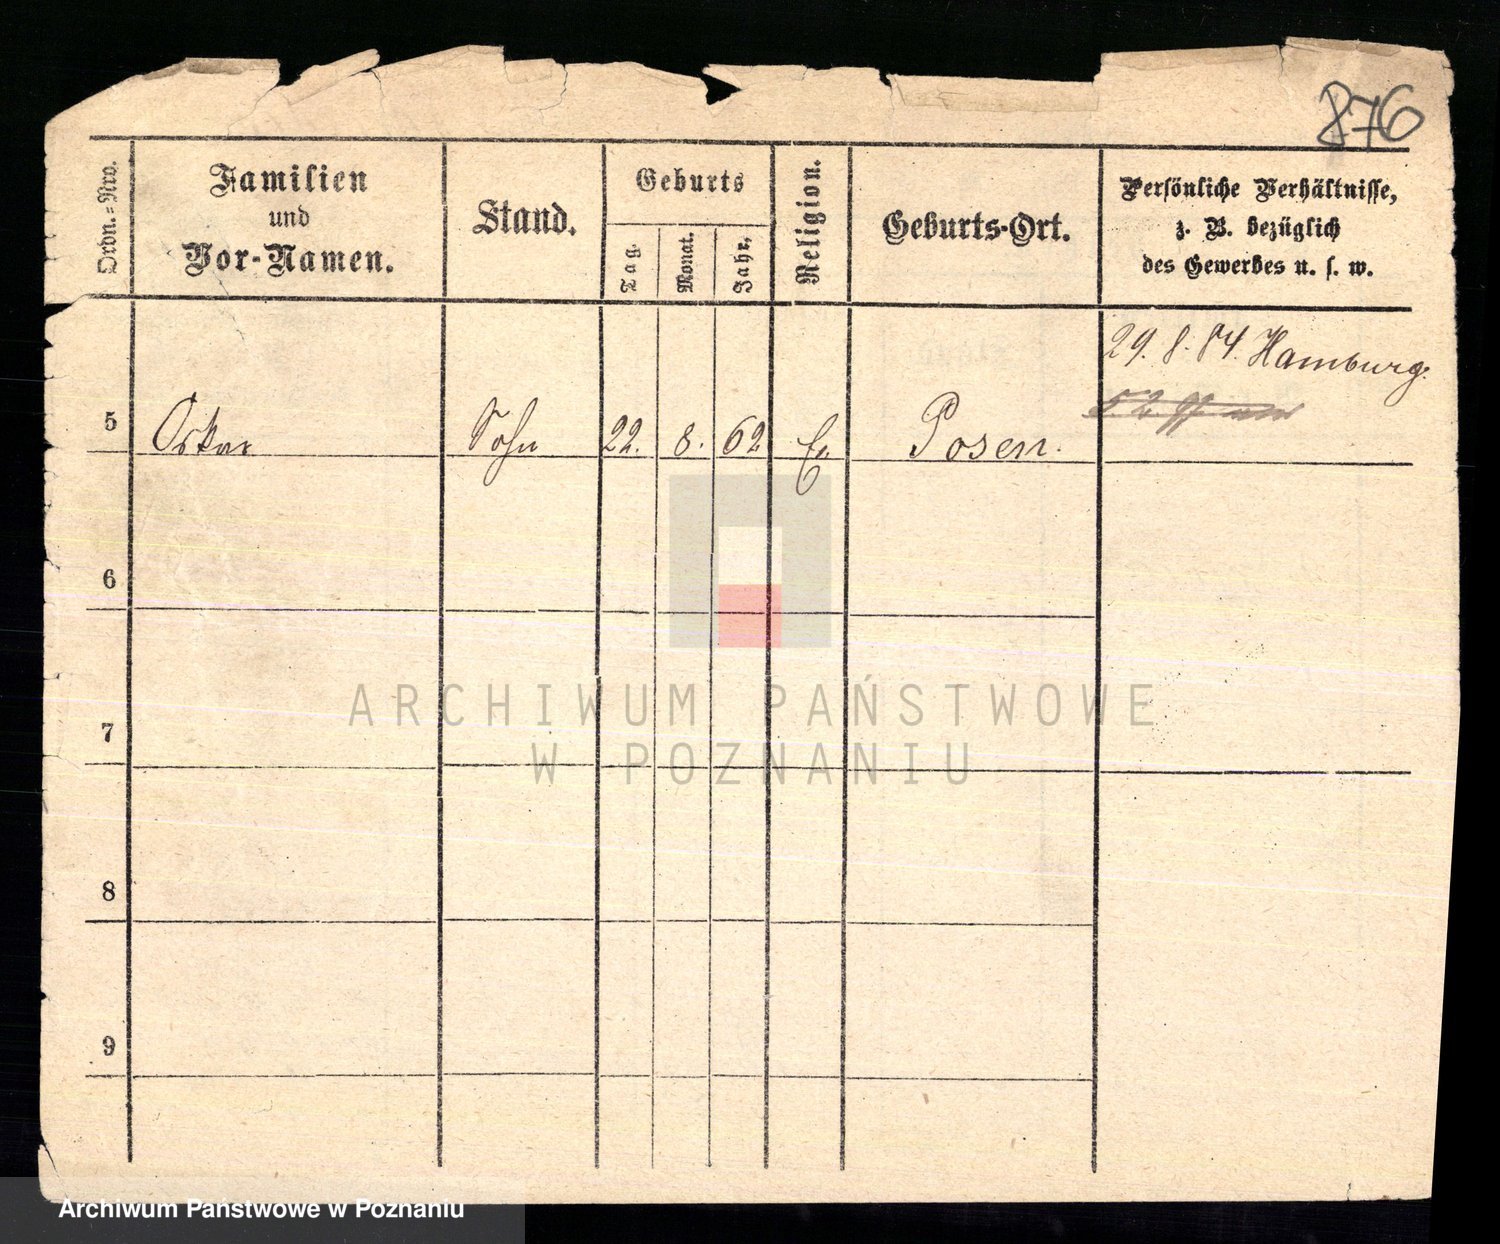 876
Ordn.-Nro.
Familien
und
Vor-Namen.
Stand.
Geburts
Tag.
Monat.
Jahr.
Religion.
Geburts-Ort.
Persönliche Verhältnisse,
z. B. bezüglich
des Gewerbes u. s. w.
29. 8. 84. Hamburg.
5 Oskar Sohn 22. 8. 62 Posen.
6
7
8
9
ARCHIWUM PAŃSTWOWE
W POZNANIU
Archiwum Państwowe w Poznaniu